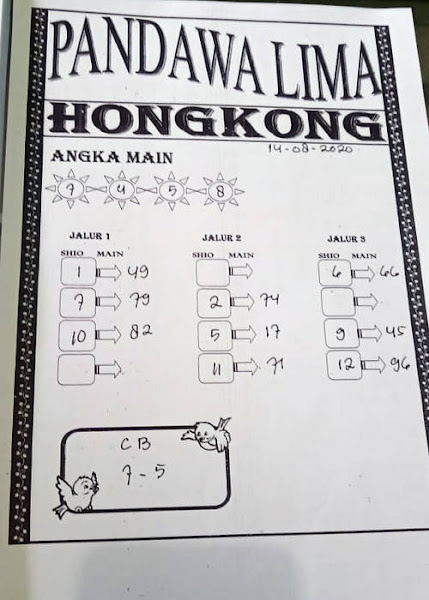 PANDAWA LIMA
HONGKONG
14-08-2020
ANGKA MAIN
7 4 5 8
JALUR 1 JALUR 2 JALUR 3
SHIO MAIN SHIO MAIN SHIO MAIN
1 49 6 66
7 79 2 74
10 82 5 17 9 45
11 71 12 96
CB
7-5